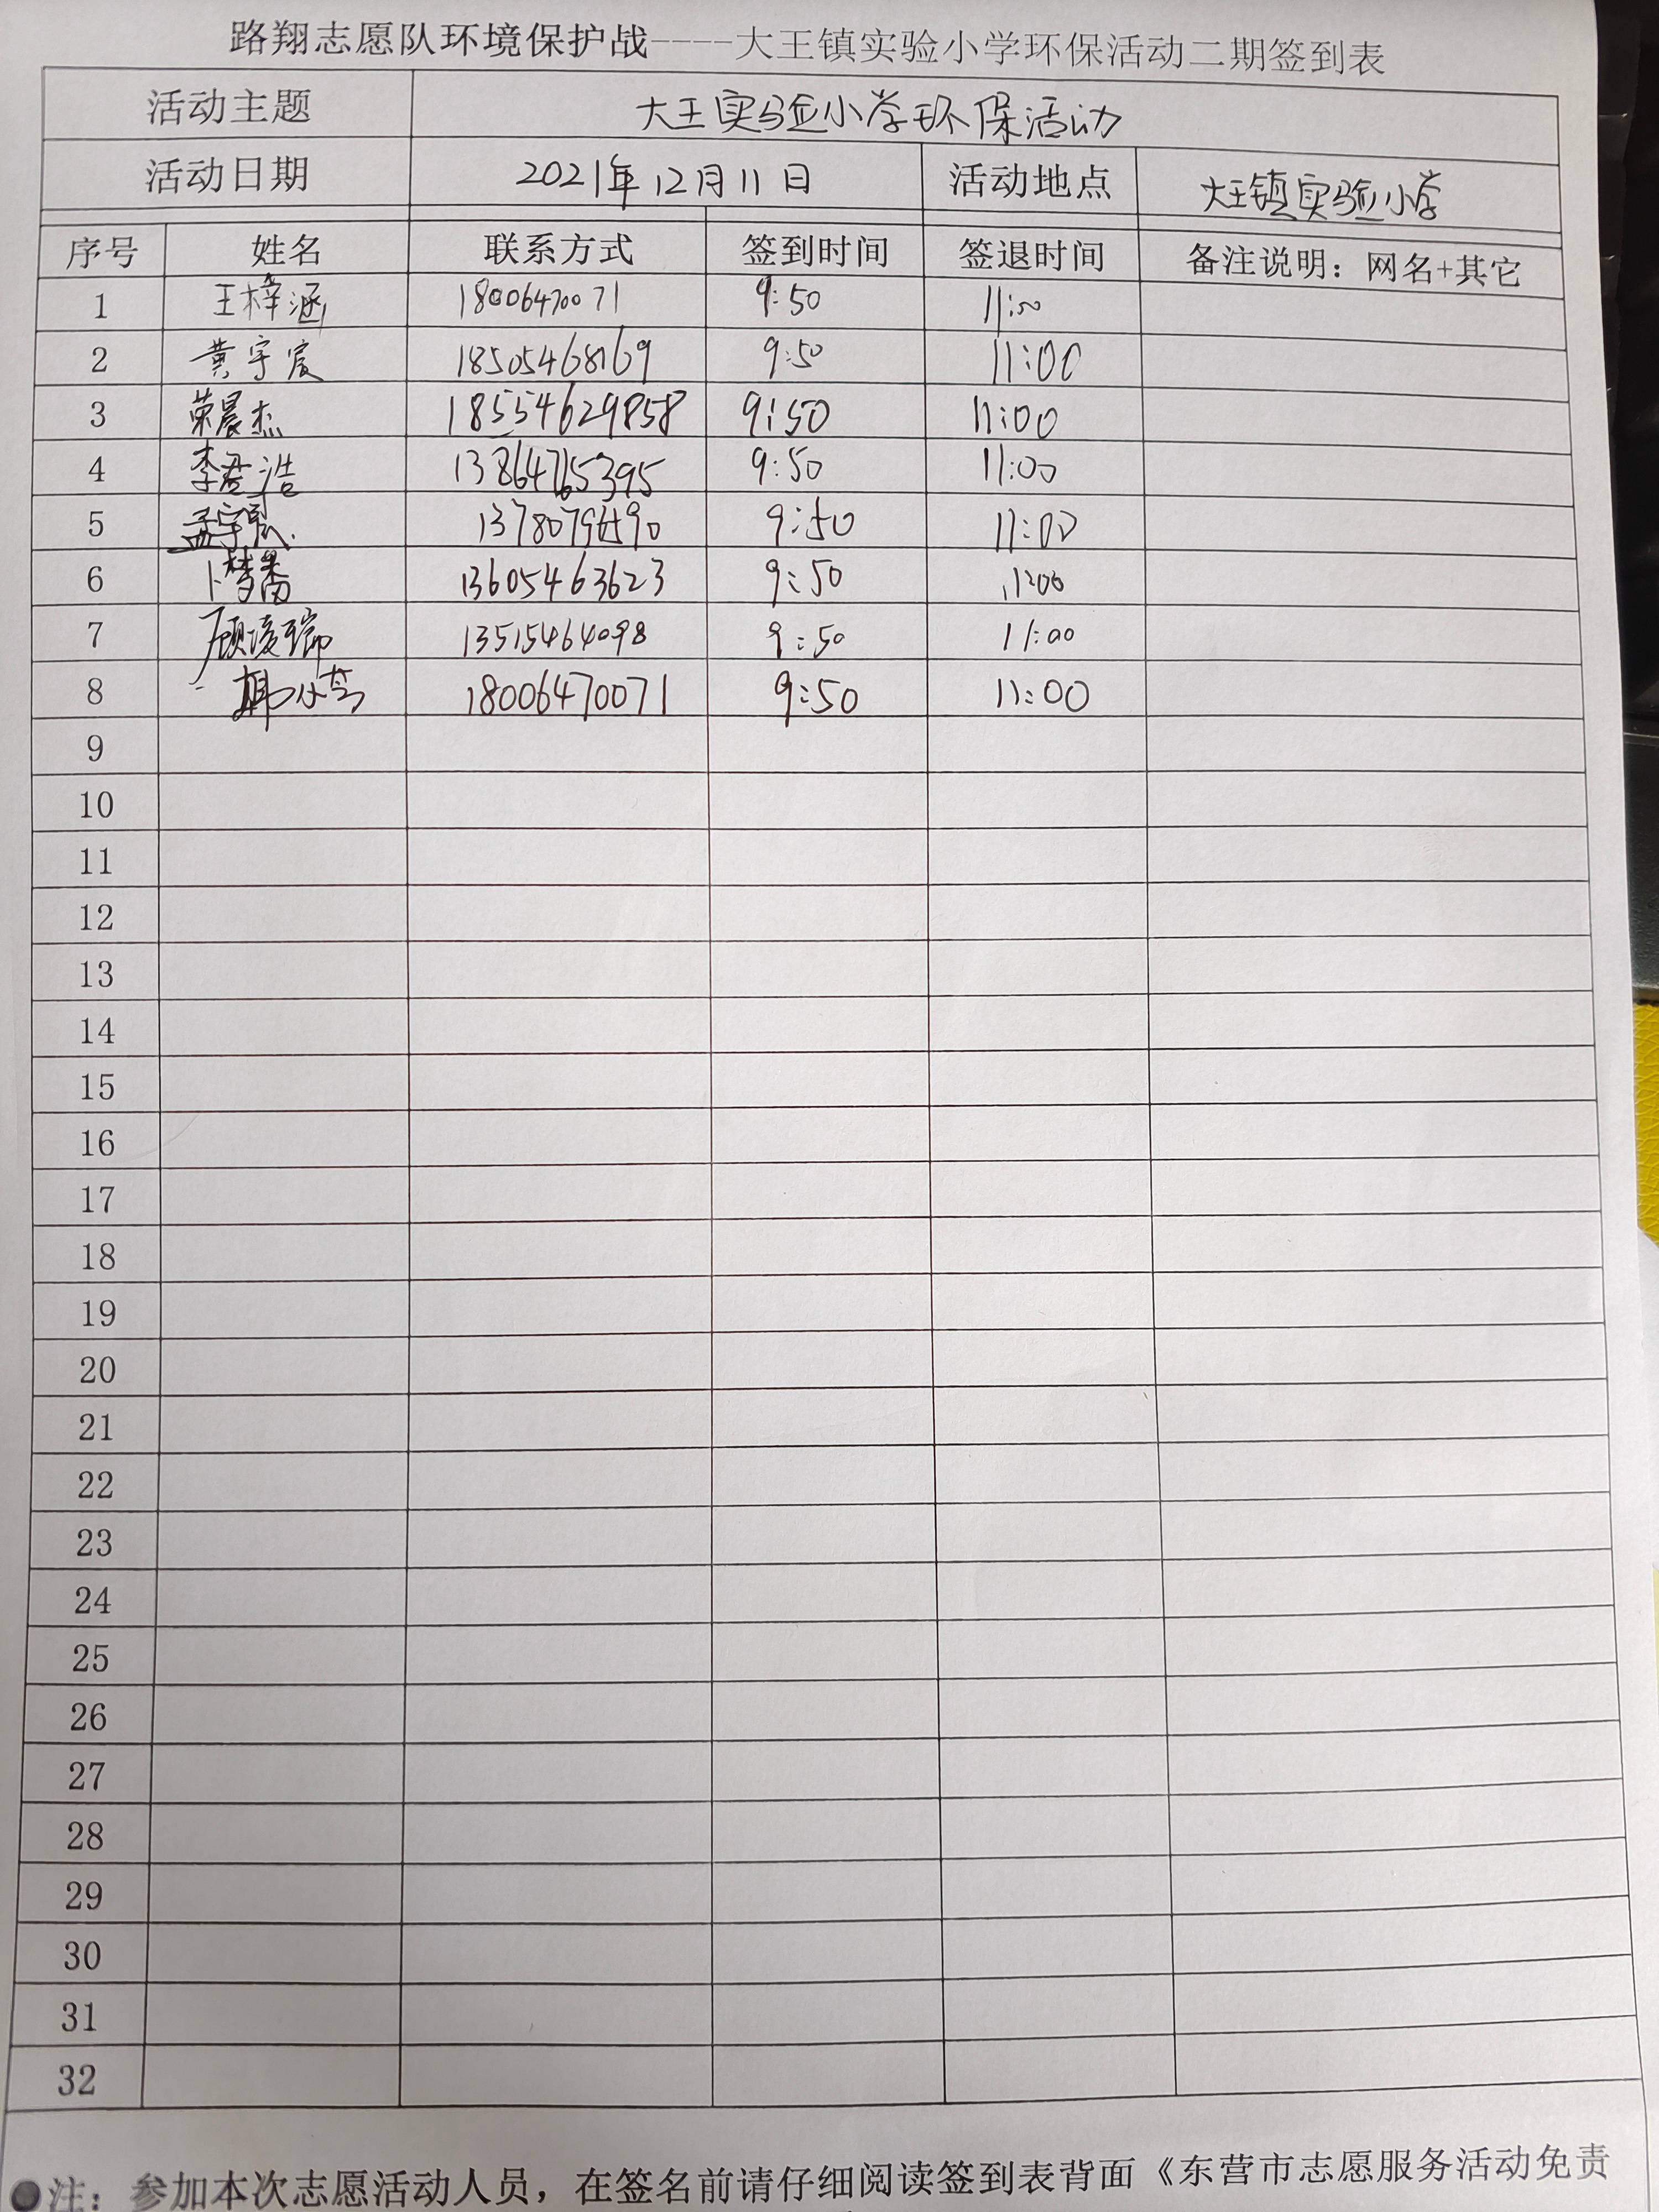 路翔志愿队环境保护战----大王镇实验小学环保活动二期签到表
活动主题 大王实验小学环保活动
活动日期 2021年12月11日 活动地点 大王镇实验小学
序号 姓名 联系方式 签到时间 签退时间 备注说明：网名+其它
1 王梓涵 18006470071 9:50 11:00
2 黄宇宸 18505468169 9:50 11:00
3 荣晨杰 18554629858 9:50 11:00
4 李君浩 13864765395 9:50 11:00
5 孟宇 9:50 11:00
6 卜梦 13605463623 9:50 11:00
7 顾凌瑞 13515464098 9:50 11:00
8 18006470071 9:50 11:00
9
10
11
12
13
14
15
16
17
18
19
20
21
22
23
24
25
26
27
28
29
30
31
32
注：参加本次志愿活动人员，在签名前请仔细阅读签到表背面《东营市志愿服务活动免责